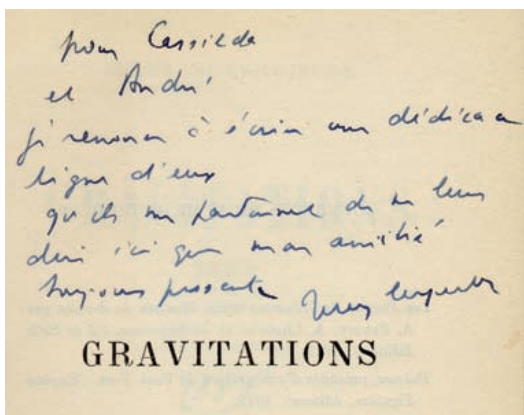 pour Cassilda
et André
je renonce à écrire une dédicace
digne d'eux
qu'ils me pardonnent de ne leur
dire ici que mon amitié
toujours présente Jules Supervielle
GRAVITATIONS